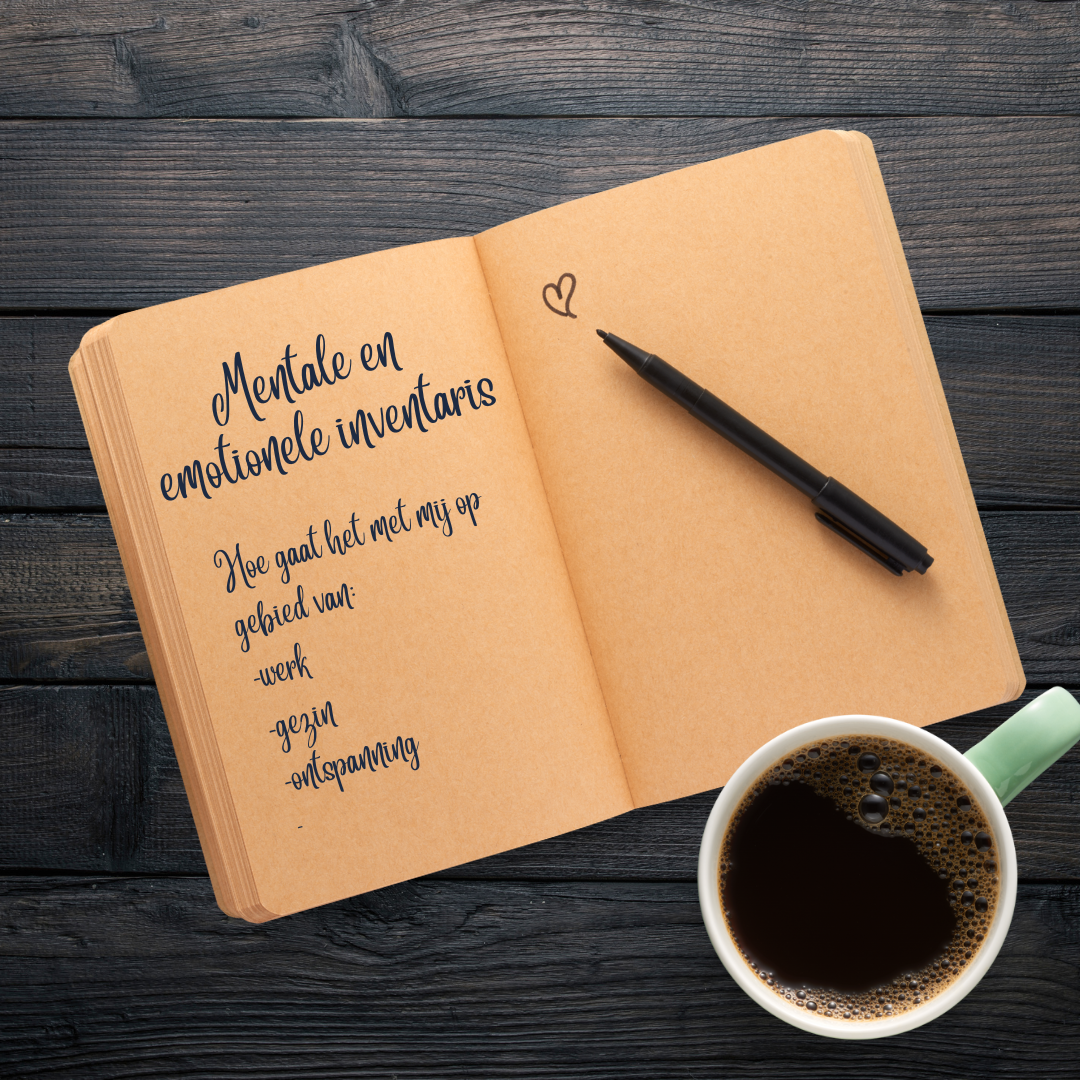 Mentale en
emotionele inventaris
Hoe gaat het met mij op
gebied van:
-werk
-gezin
-ontspanning
-